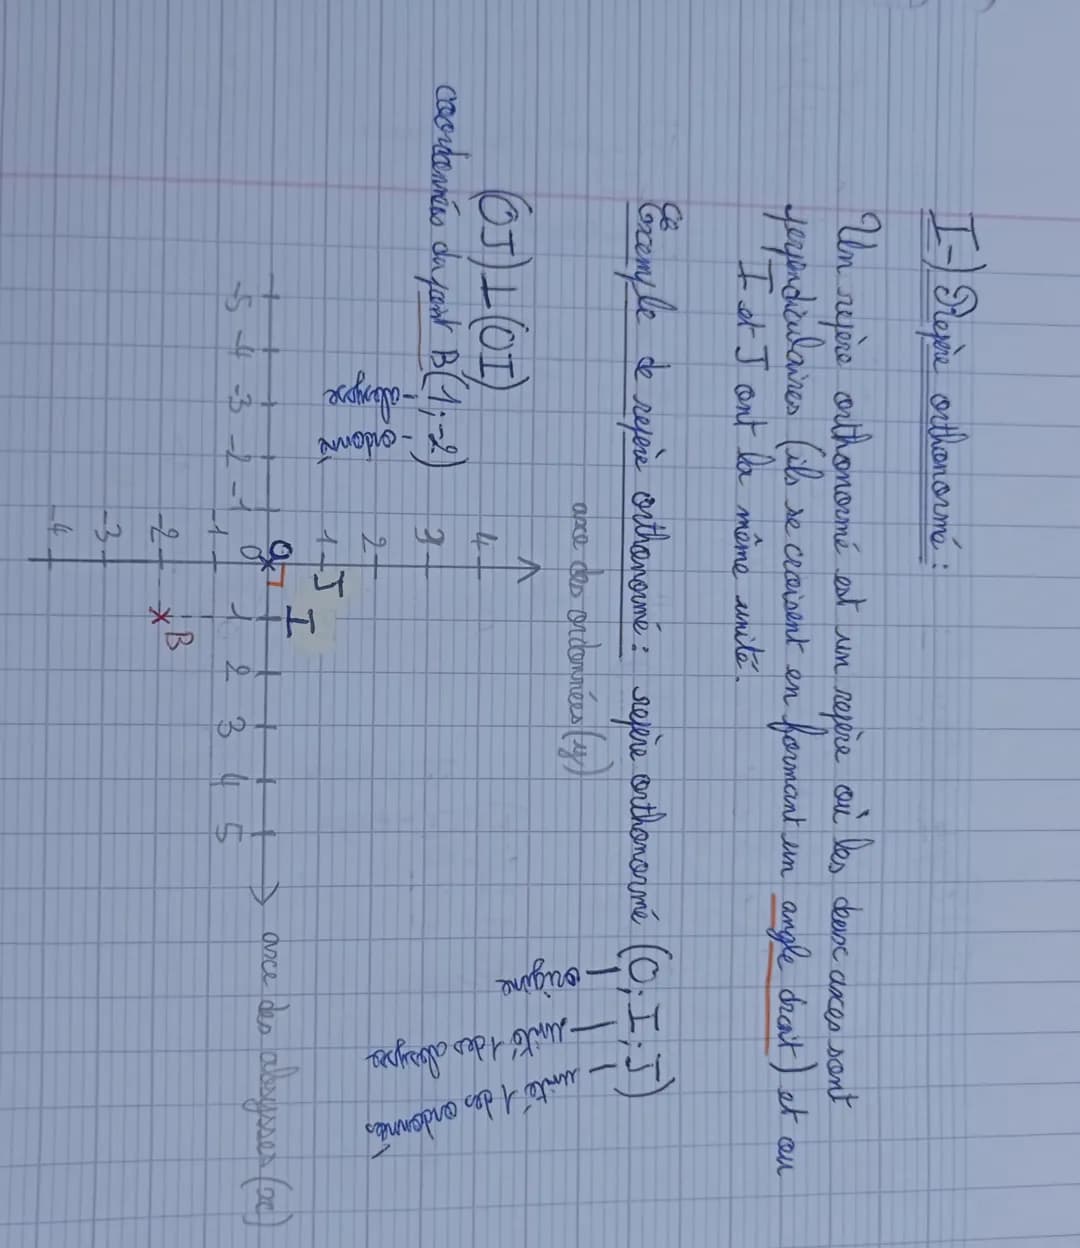 I-) Repère orthonormé :
Un repère orthonormé est un repère où les deux axes sont
perpendiculaires (ils se croisent en formant un angle droit) et ou
I et J ont la même unité.
Exemple de repère orthonormé : repère orthonormé (O; I; J)
origine
unité 1 des abscysses
unité 1 des ordonnés
axe des ordonnées (y)
(OJ) ⊥ (OI)
coordonnées du point B(1; -2)
abscysse
ordonné
4
3
2
1 J
O I
-5 -4 -3 -2 -1 0 1 2 3 4 5
axe des abscysses (x)
-1
-2
B
-3
-4